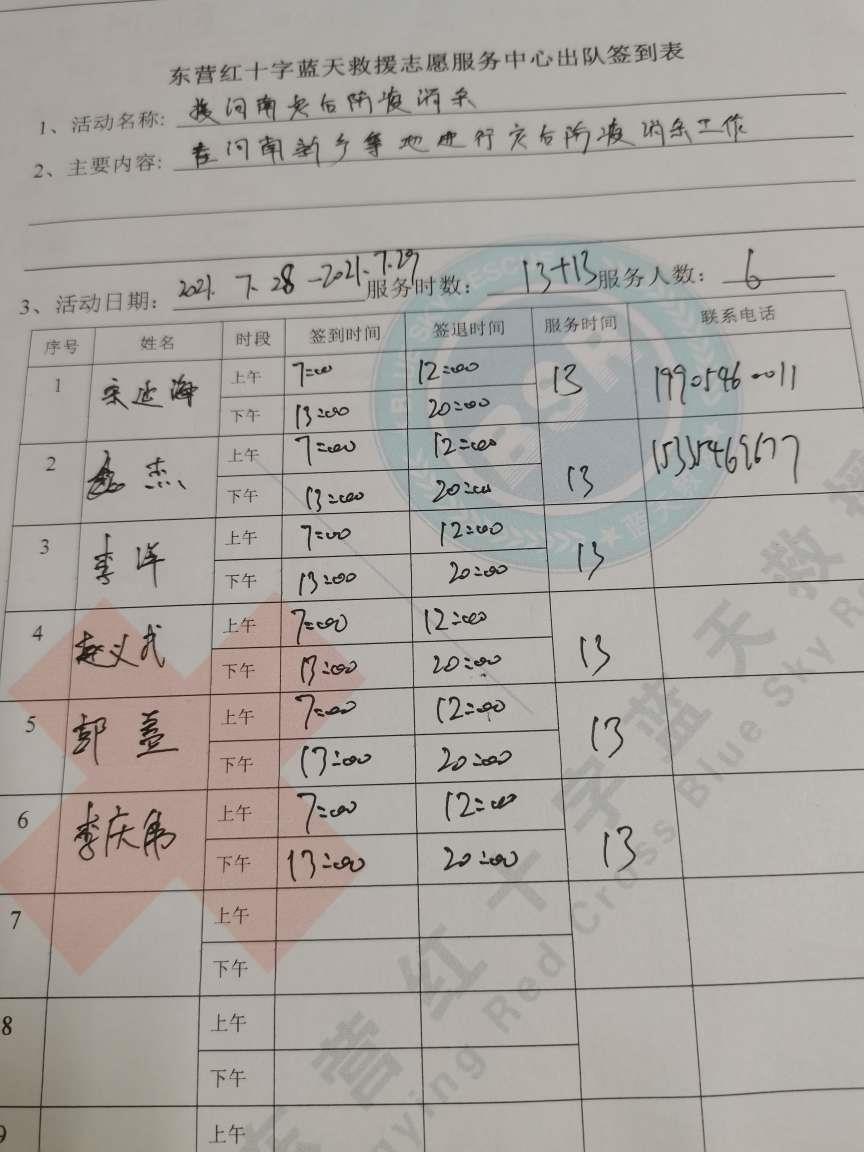 东营红十字蓝天救援志愿服务中心出队签到表
1、活动名称: 援河南灾后防疫消杀
2、主要内容: 在河南新乡等地进行灾后防疫消杀工作
3、活动日期: 2021.7.28-2021.7.29 服务时数: 13+13 服务人数: 6
序号 姓名 时段 签到时间 签退时间 服务时间 联系电话
1 宋延海 上午 7:00 12:00 13 19905460011
下午 13:00 20:00
2 杰 上午 7:00 12:00 13
下午 13:00 20:00
3 李洋 上午 7:00 12:00 13
下午 13:00 20:00
4 赵义武 上午 7:00 12:00 13
下午 13:00 20:00
5 郭 上午 7:00 12:00 13
下午 13:00 20:00
6 李庆伟 上午 7:00 12:00 13
下午 13:00 20:00
7 上午
下午
8 上午
下午
9 上午
BSR
蓝天救
东营红十字蓝天救援
ying Red Cross Blue Sky Re